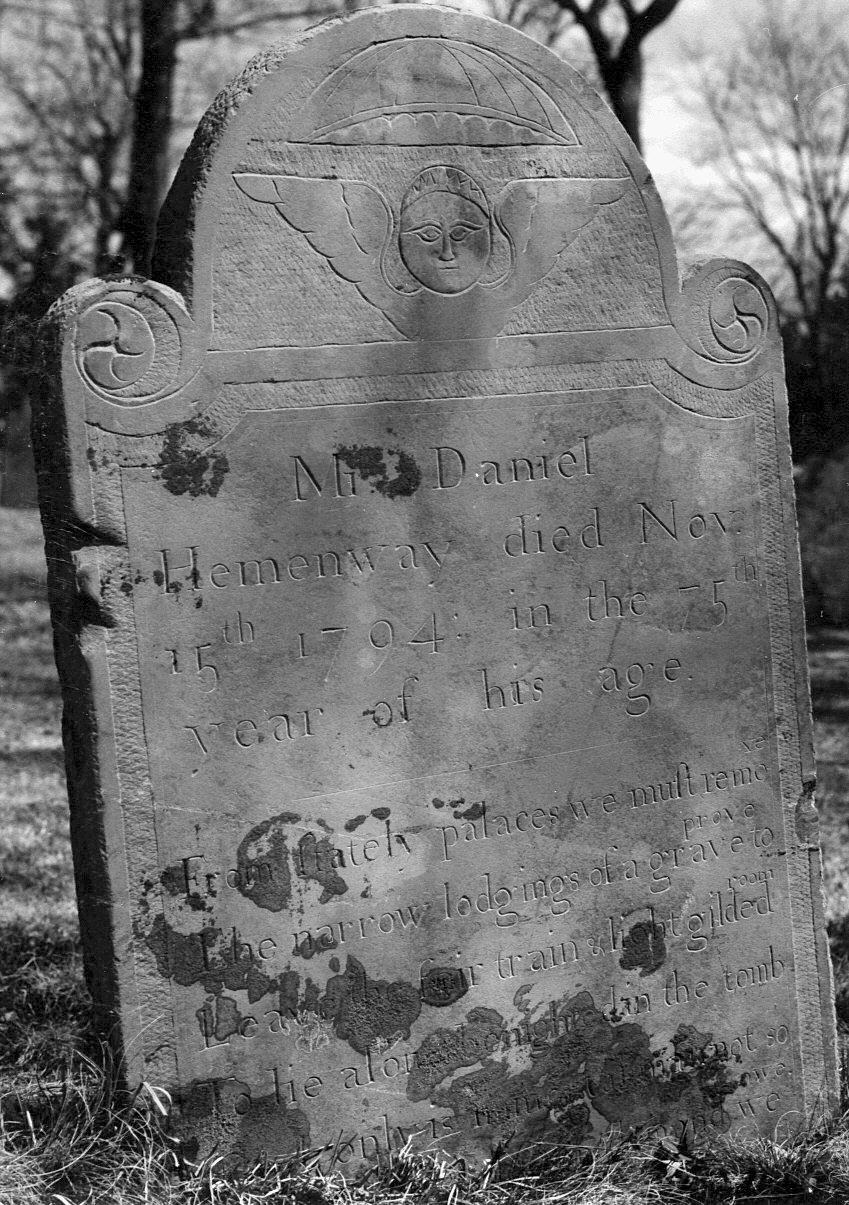 Mr Daniel
Hemenway died Nov.
15th 1794: in the 75th
year of his age.
From ſtately palaces we muſt remo
ve
The narrow lodgings of a grave to
prove
Leave the fair train & light gilded
room
To lie alone benighted in the tomb
only
not so
we